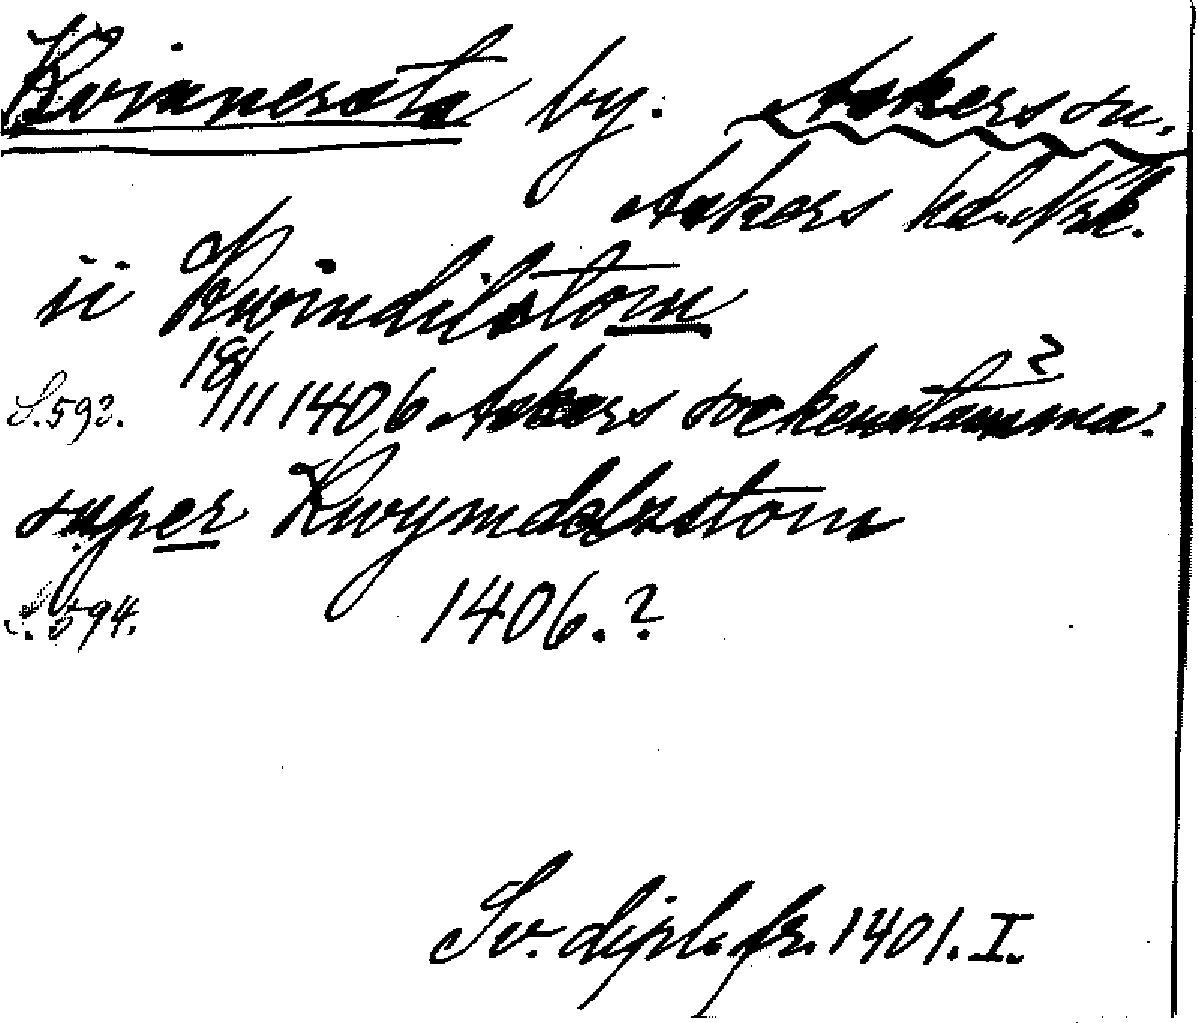 Kvinnersta by. Askers sn.
Askers hd. Nrk.
ii Kwindilstom
S. 593. 18/11 1406 Askers sockenstämma?
super Kwymdelstom
S. 594. 1406.?
Sv. dipl. fr. 1401. I.